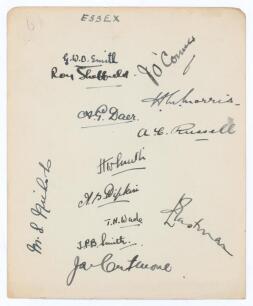 ESSEX
G.W.B. Smith
Roy Sheffield.
J. O'Connor
H.W. Morris.
A.G. Daer.
A. C. Russell
H W Smith
M. S. Nichols
T.H. Wade
L. Eastman
J.P.B. Smith.
J. A. Cutmore